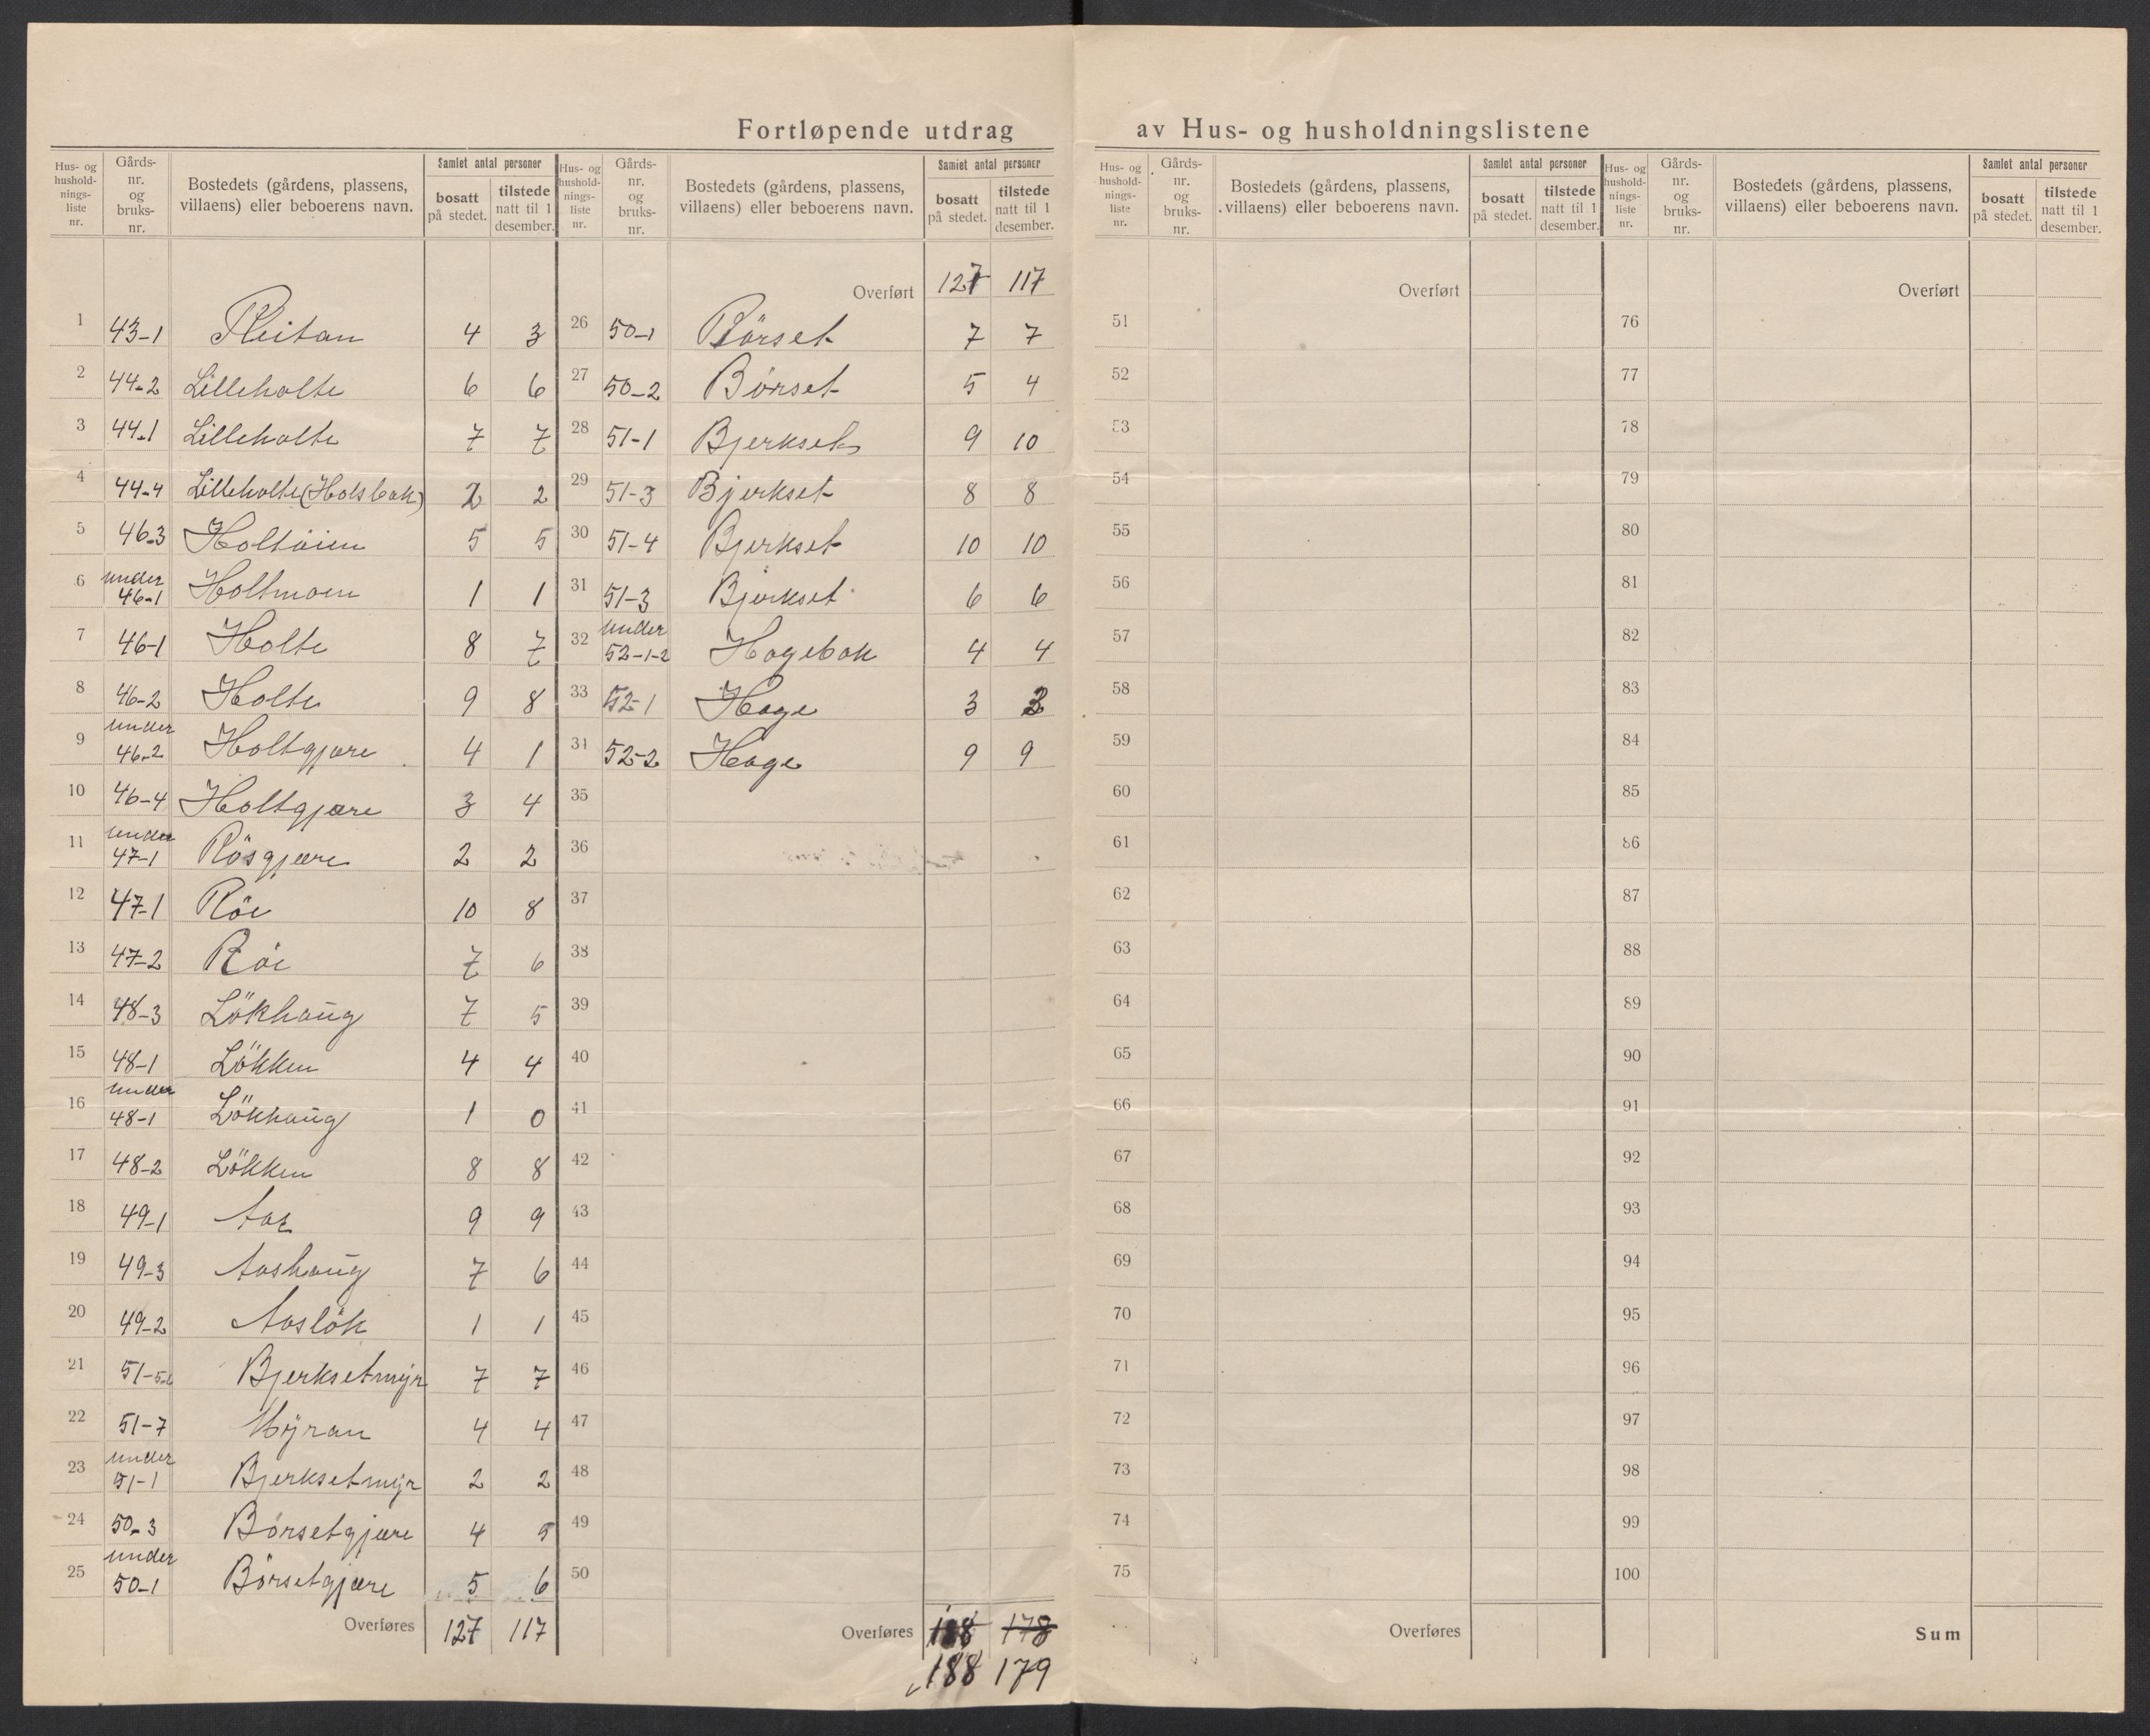 Fortløpende utdrag av Hus- og husholdningslistene
Hus- og husholdnings- liste nr. | Gårds- nr. og bruks- nr. | Bostedets (gårdens, plassens, villaens) eller beboerens navn. | Samlet antal personer | bosatt på stedet. | tilstede natt til 1 desember.
1 43-1 Pleitan 4 3
2 44-2 Lilleholte 6 6
3 44-1 Lilleholte 7 7
4 44-4 Lilleholte (Holsbak) 2 2
5 46-3 Holtöien 5 5
6 under 46-1 Holtmoen 1 1
7 46-1 Holte 8 7
8 46-2 Holte 9 8
9 under 46-2 Holtgjære 4 1
10 46-4 Holtgjære 3 4
11 under 47-1 Rösgjære 2 2
12 47-1 Röe 10 8
13 47-2 Röe 7 6
14 48-3 Lökhaug 7 5
15 48-1 Lökken 4 4
16 under 48-1 Lökhaug 1 0
17 48-2 Lökken 8 8
18 49-1 Aas 9 9
19 49-3 Aashaug 7 6
20 49-2 Aaslök 1 1
21 51-5-6 Bjerksetmyr 7 7
22 51-7 Myran 4 4
23 under 51-1 Bjerksetmyr 2 2
24 50-3 Börsetgjære 4 5
25 under 50-1 Börsetgjære 5 6
Overføres 127 117
Hus- og husholdnings- liste nr. | Gårds- nr. og bruks- nr. | Bostedets (gårdens, plassens, villaens) eller beboerens navn. | Samlet antal personer | bosatt på stedet. | tilstede natt til 1 desember.
Overført 127 117
26 50-1 Börset 7 7
27 50-2 Börset 5 4
28 51-1 Bjerkset 9 10
29 51-3 Bjerkset 8 8
30 51-4 Bjerkset 10 10
31 51-3 Bjerkset 6 6
32 under 52-1-2 Hagebak 4 4
33 52-1 Hage 3
34 52-2 Hage 9 9
35
36
37
38
39
40
41
42
43
44
45
46
47
48
49
50
Overføres 188 178
188 179
Hus- og hushold- nings- liste nr. | Gårds- nr. og bruks- nr. | Bostedets (gårdens, plassens, villaens) eller beboerens navn. | Samlet antal personer | bosatt på stedet. | tilstede natt til 1 desember.
Overført
51
52
53
54
55
56
57
58
59
60
61
62
63
64
65
66
67
68
69
70
71
72
73
74
75
Overføres
Hus- og hushold- nings- liste nr. | Gårds- nr. og bruks- nr. | Bostedets (gårdens, plassens, villaens) eller beboerens navn. | Samlet antal personer | bosatt på stedet. | tilstede natt til 1 desember.
Overført
76
77
78
79
80
81
82
83
84
85
86
87
88
89
90
91
92
93
94
95
96
97
98
99
100
Sum